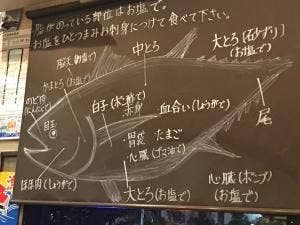 脂がのっている部位はお塩で。
お塩をひとつまみお刺身につけて食べて下さい。
脳天(お塩で)
中とろ
大とろ(砂ずり)
(お塩で)
かまとろ(お塩で)
のど肉
(にんにくで)
白子(ポン酢で)
赤身
血合い(しょうがで)
目玉
尾
・胃袋
たまご
・心臓(ゴマ油で)
ほほ肉(しょうがで)
大とろ(お塩で)
心臓(ホシ)
(お塩で)